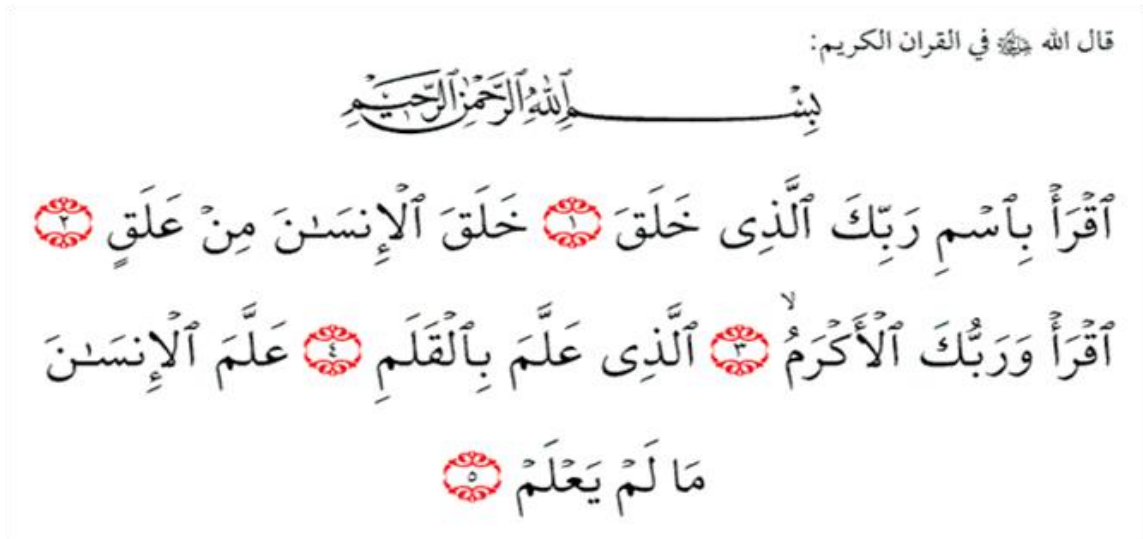 قال الله ﷻ في القران الكريم:
بِسْمِ ٱللَّهِ ٱلرَّحْمَٰنِ ٱلرَّحِيمِ
ٱقْرَأْ بِٱسْمِ رَبِّكَ ٱلَّذِى خَلَقَ ١ خَلَقَ ٱلْإِنسَـٰنَ مِنْ عَلَقٍ ٢
ٱقْرَأْ وَرَبُّكَ ٱلْأَكْرَمُ ۙ ٣ ٱلَّذِى عَلَّمَ بِٱلْقَلَمِ ٤ عَلَّمَ ٱلْإِنسَـٰنَ
مَا لَمْ يَعْلَمْ ٥